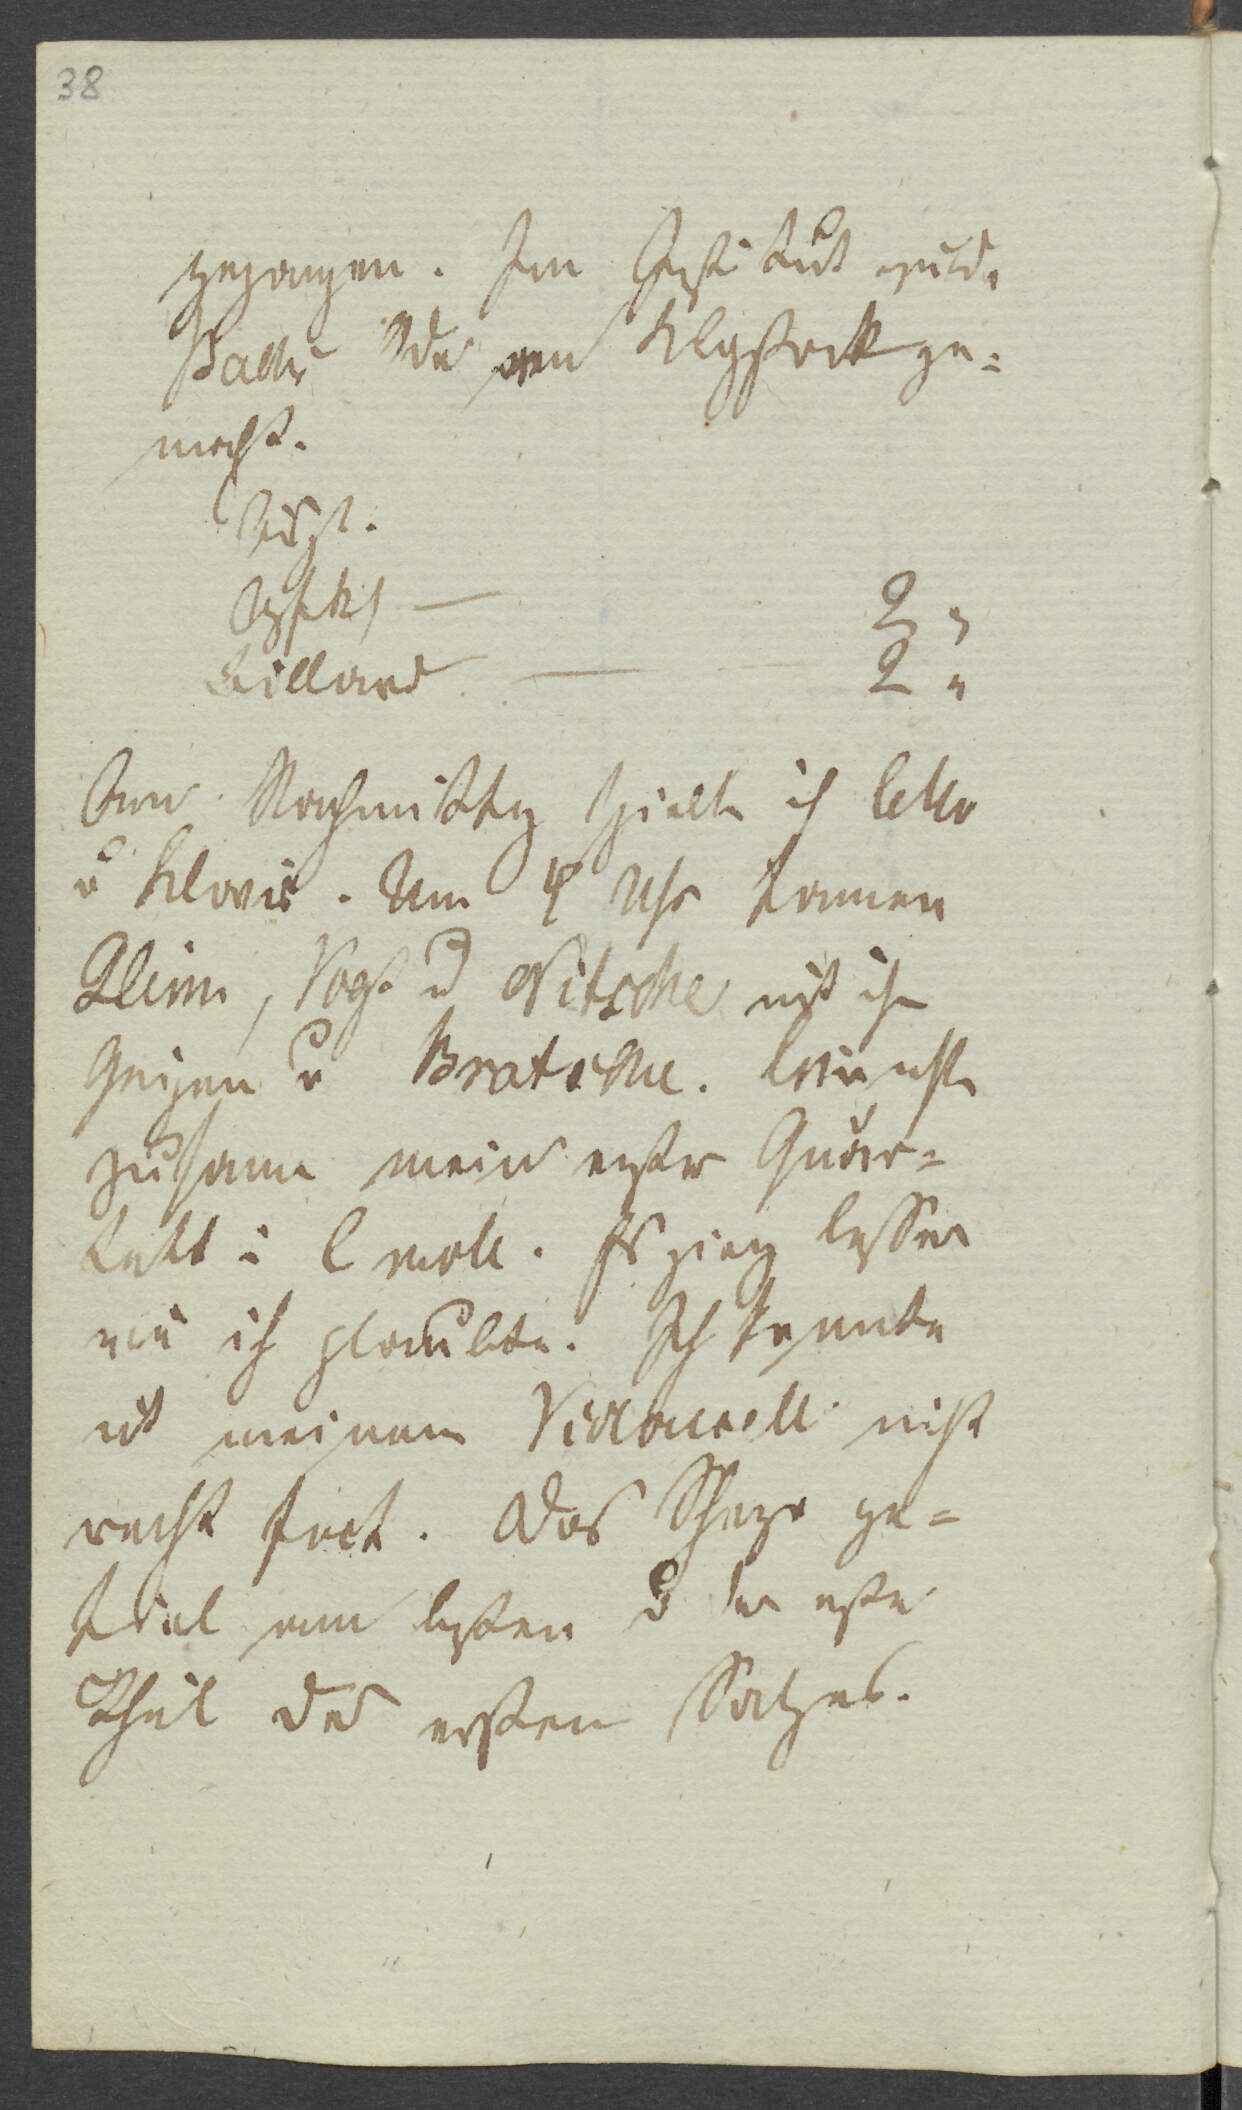 38
gegangen. Im Institut wurde
Ode von Klopstock ge-
macht.
Ausg.
2 "
Billard — 2 "
Den Nachmittag spielt ich Cello
u Klavir. Um 4 Uhr kamen
Klemm, Vogt u Nitzsche mit ihr
Geigen u Bratsche.
zusamm mein erstes Quar-
tett i C moll. Es ging besser
wie ich glaubte. Ich konnte
mit meinem Violoncell nicht
recht fort. Das Scherzo ge-
fiel am besten u der erste
Theil des ersten Satzes.